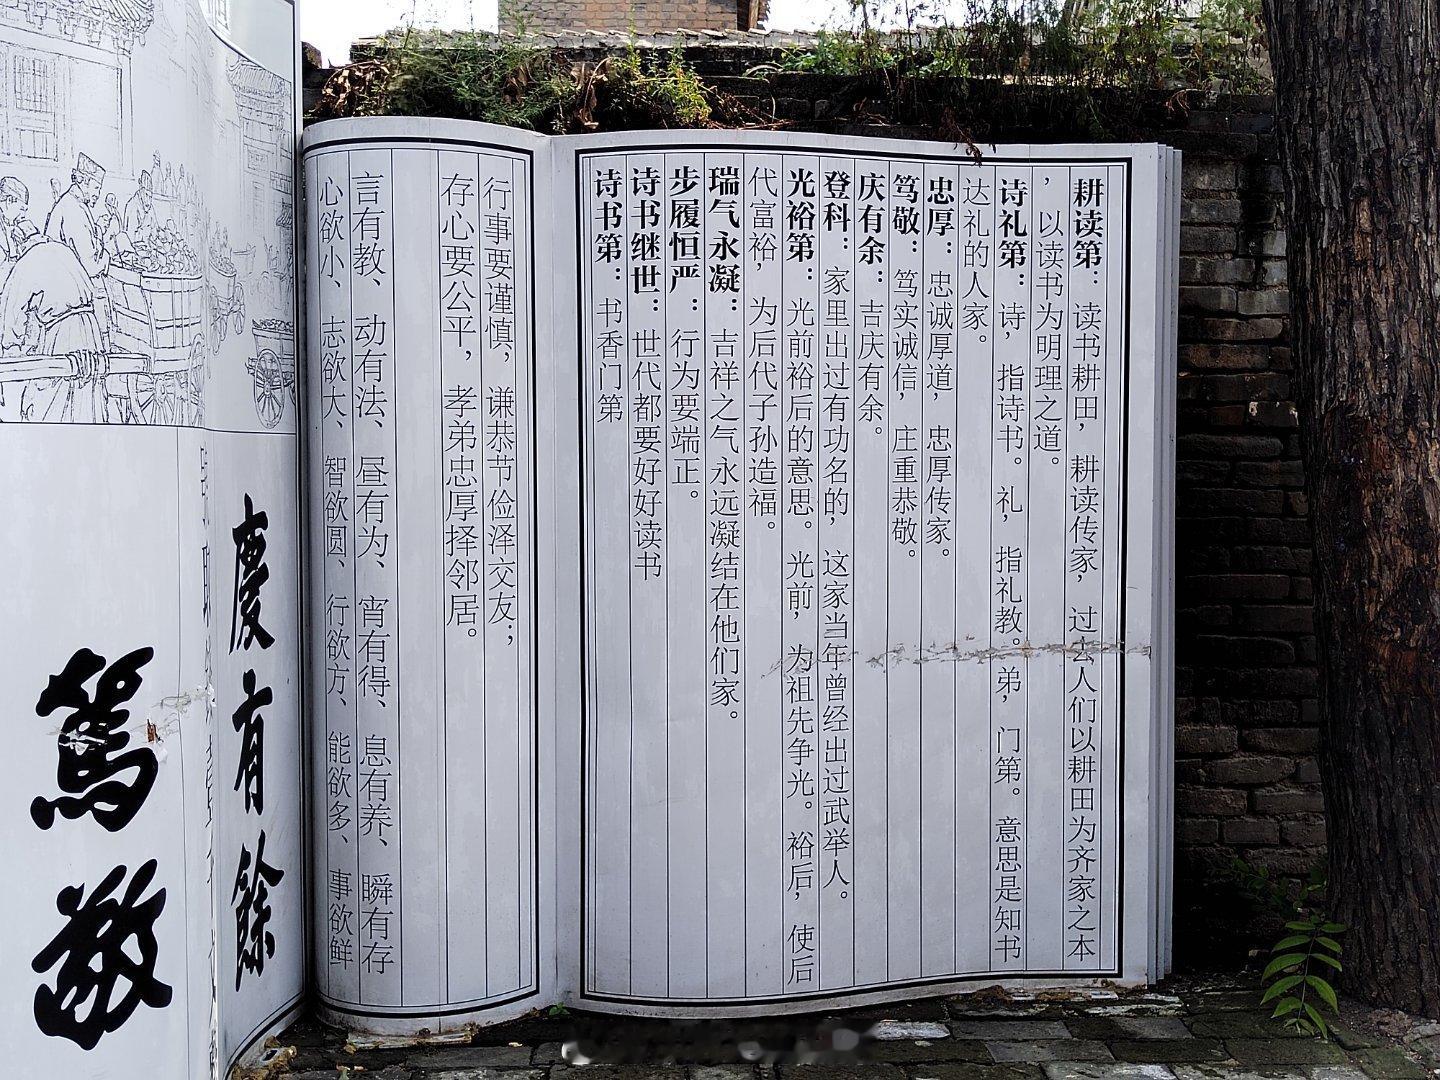 耕读第：读书耕田，耕读传家，过去人们以耕田为齐家之本
，以读书为明理之道。
诗礼第：诗，指诗书。礼，指礼教。弟，门第。意思是知书
达礼的人家。
忠厚：忠诚厚道，忠厚传家。
笃敬：笃实诚信，庄重恭敬。
庆有余：吉庆有余。
登科：家里出过有功名的，这家当年曾经出过武举人。
光裕第：光前裕后的意思。光前，为祖先争光。裕后，使后
代富裕，为后代子孙造福。
瑞气永凝：吉祥之气永远凝结在他们家。
步履恒严：行为要端正。
诗书继世：世代都要好好读书
诗书第：书香门第
行事要谨慎，谦恭节俭泽交友；
存心要公平，孝弟忠厚择邻居。
言有教、动有法、昼有为、宵有得、息有养、瞬有存
心欲小、志欲大、智欲圆、行欲方、能欲多、事欲鲜
慶有餘
篤敬